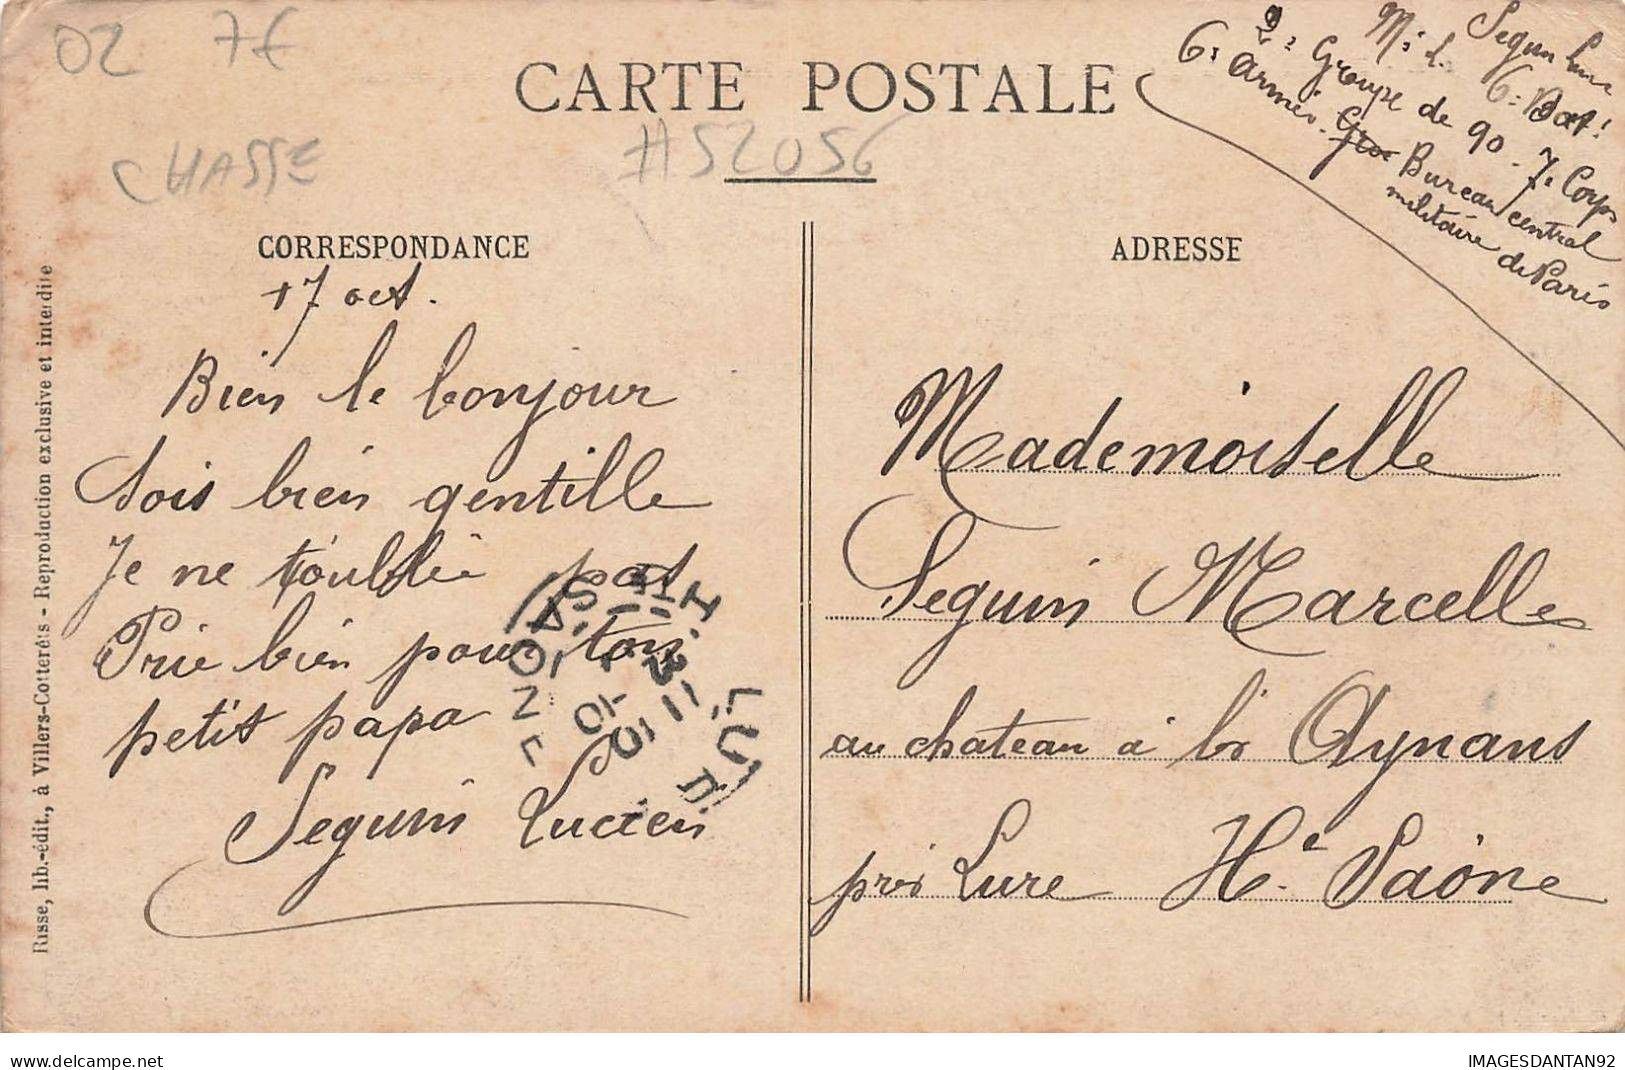 02 7€
CHASSE
#52056
CARTE POSTALE
Seguin Luc
M: d. 6: Bat!
2: Groupe de 90. 7: Corps
6: Armés. Bureau central
militaire de Paris
CORRESPONDANCE
17 oct.
Bien le bonjour
Sois bien gentille
Je ne t'oublie pas
Prie bien pour ton
petit papa
Seguin Lucien
LURE
Hte SAONE
ADRESSE
Mademoiselle
Seguin Marcelle
au chateau à les Aynans
près Lure Hte Saône
Risse, lib.-édit., à Villers-Cotterêts - Reproduction exclusive et interdite
www.delcampe.net
IMAGESDANTAN92